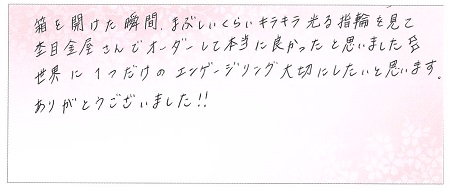 箱を開けた瞬間、まぶしいくらいキラキラ光る指輪を見て
杢目金屋さんでオーダーして本当に良かったと思いました
世界に1つだけのエンゲージリング大切にしたいと思います。
ありがとうございました!!